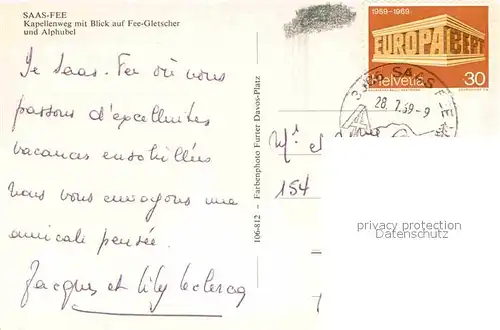 SAAS-FEE
Kapellenweg mit Blick auf Fee-Gletscher
und Alphubel
De Saas-Fee où nous
passons d'excellentes
vacances ensoleillées
nous vous envoyons une
amicale pensée.
Jacques et Lily Leclercq
106-812 – Farbenphoto Furter Davos-Platz
1959-1969
EUROPA CEPT
Helvetia 30
SAAS-FEE
28.7.69-9
Mr et Mme
154
privacy protection
Datenschutz